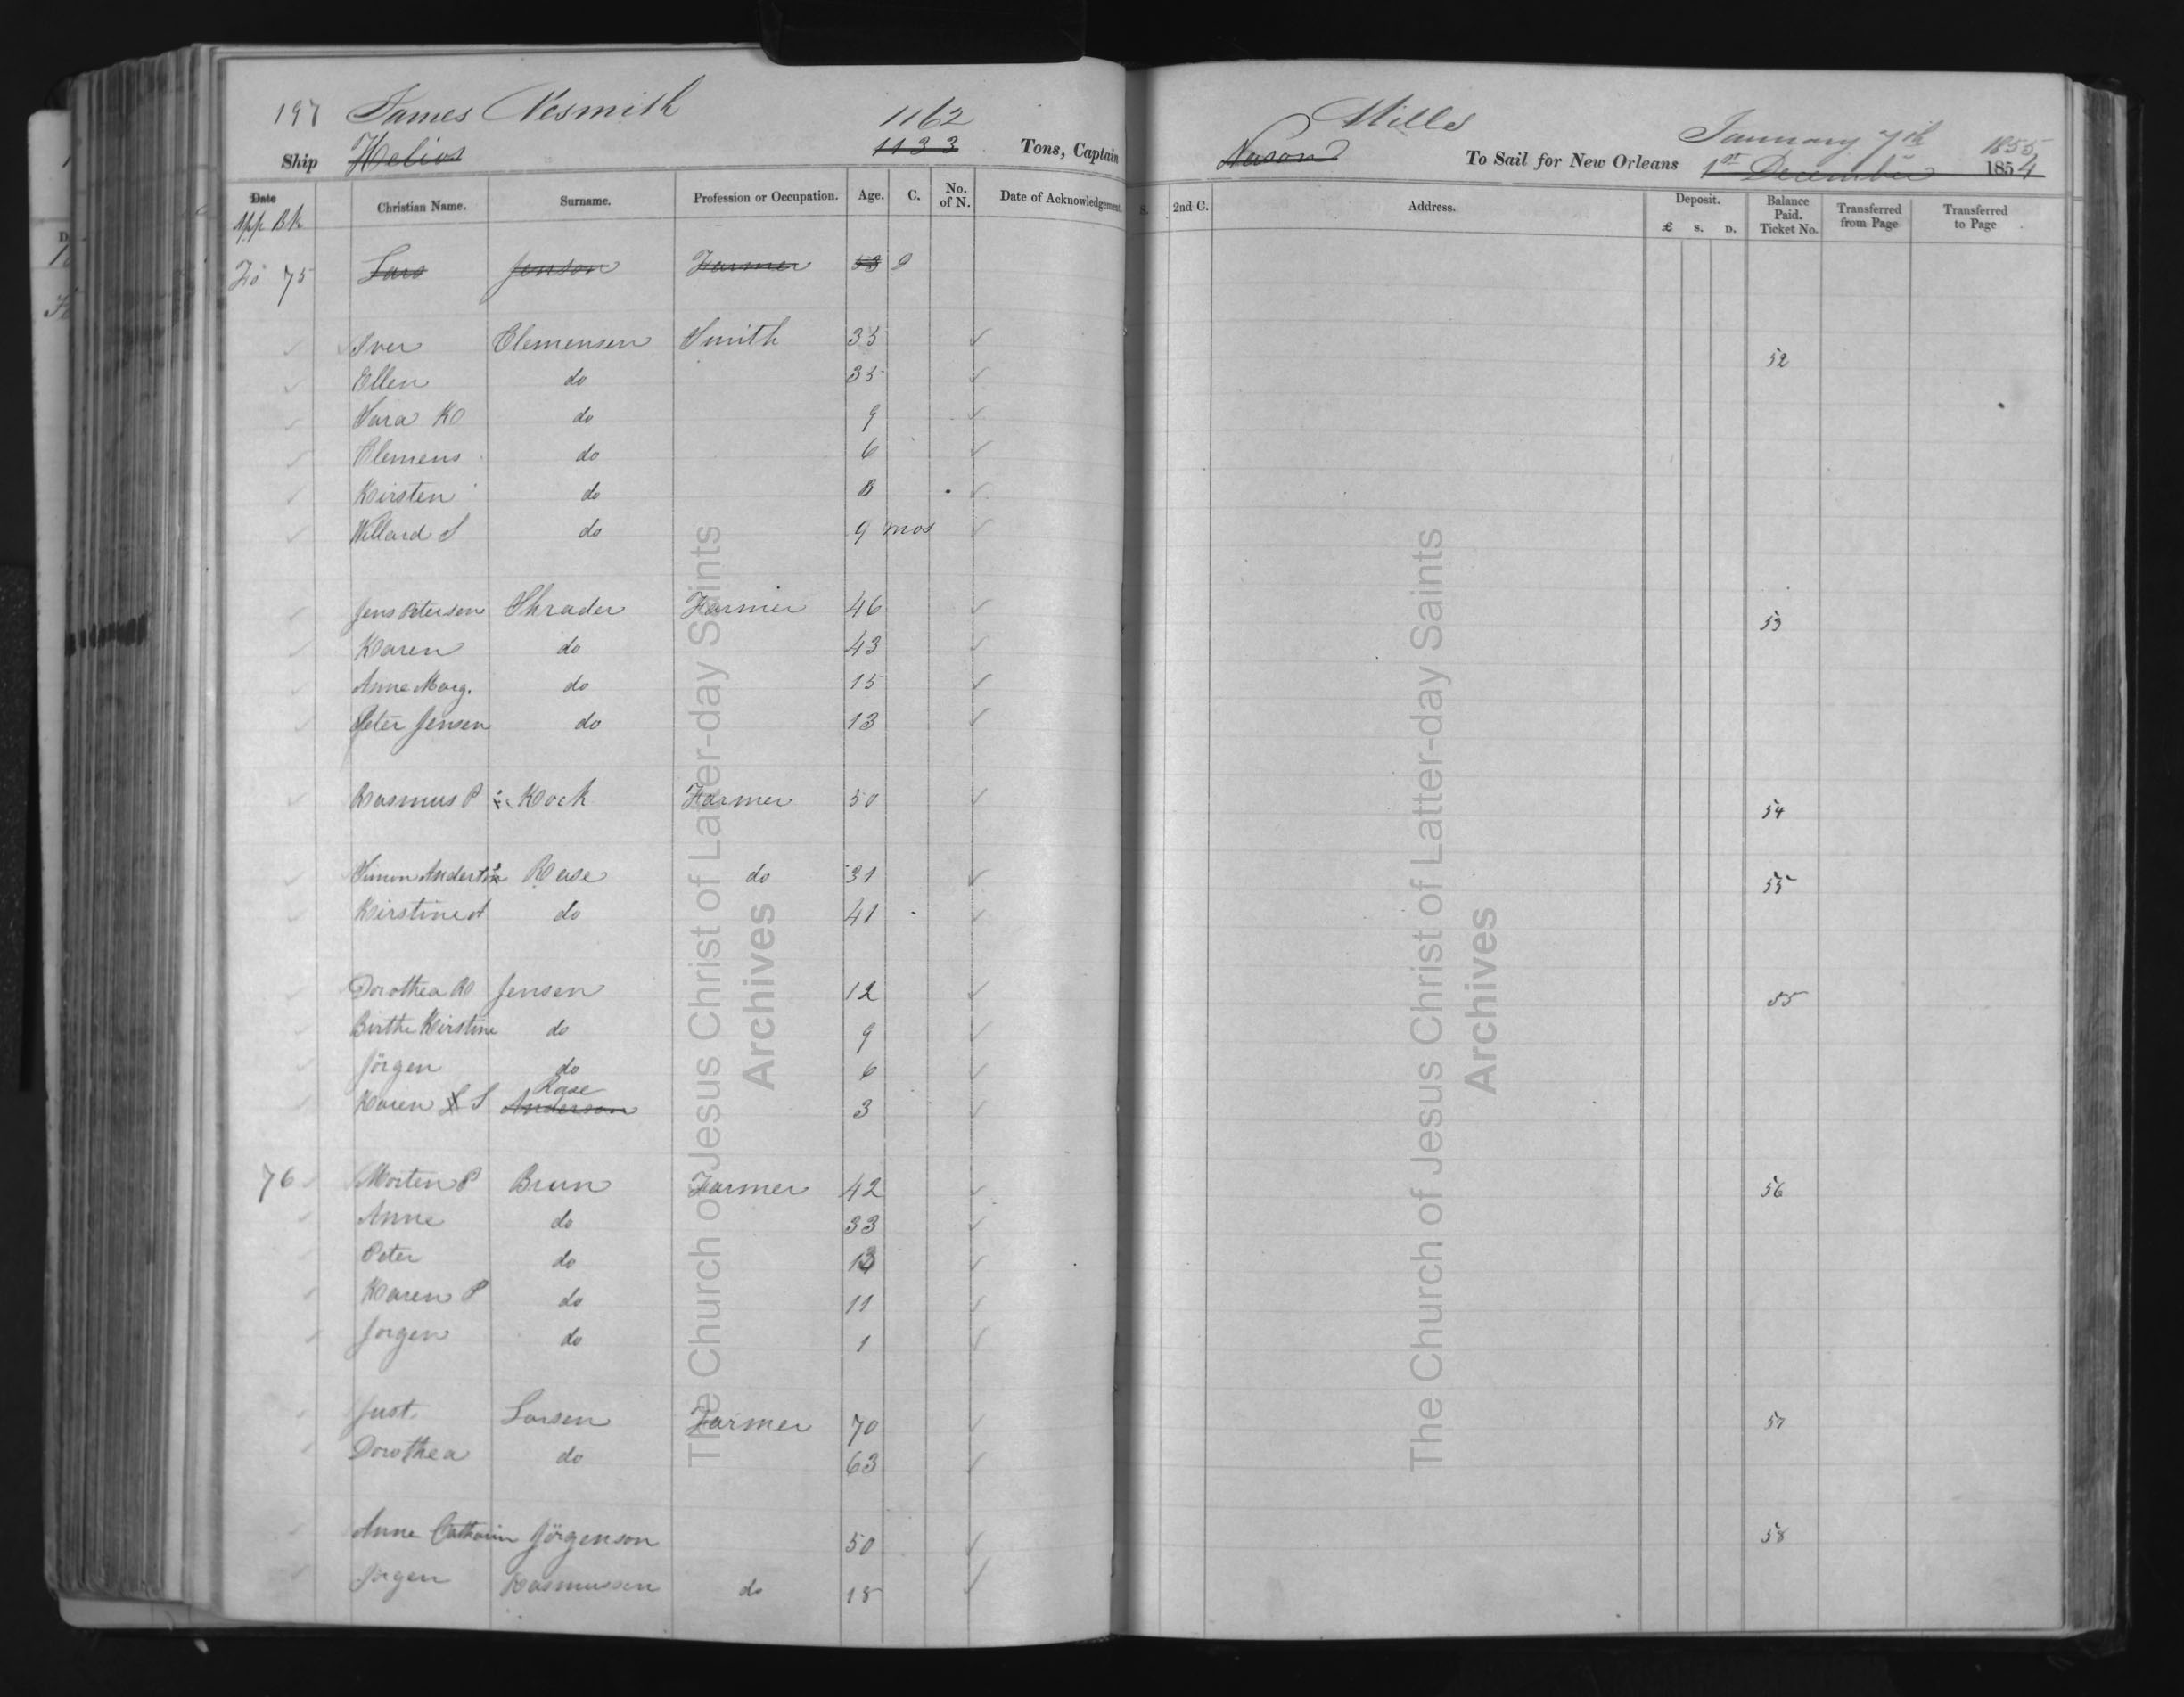 197 James Nesmith 1162 Mills January 7th 1855
Ship Helios 1133 Tons, Captain Nason To Sail for New Orleans 1st December 1854
Date Christian Name. Surname. Profession or Occupation. Age. C. No. of N. Date of Acknowledgement. S. 2nd C. Address. Deposit. £ S. D. Balance Paid. Ticket No. Transferred from Page Transferred to Page
App Bk
Fo 75 Lars Jenson Farmer
Iver Clemensen Smith 35 52
Ellen do 35
Sara K do 9
Clemens do 6
Kirsten do
Willard S do 9 mos
Jens Petersen Shrader Farmer 46 53
Karen do 43
Anne Marg. do 15
Peter Jensen do 13
Rasmus P Kock Farmer 50 54
Simon Anderson Rase do 31 55
Kirstine A do 41
Dorothea K Jensen 12 55
Birthe Kirstine do 9
Jörgen do 6
Rase
Karen S Anderson 3
76 Morten P Brun Farmer 42 56
Anne do 33
Peter do 13
Karen P do 11
Jorgen do 1
Just Larsen Farmer 70 57
Dorothea do 63
Anne Catharin Jörgenson 50 58
Jörgen Rasmussen do 18
The Church of Jesus Christ of Latter-day Saints
Archives
The Church of Jesus Christ of Latter-day Saints
Archives